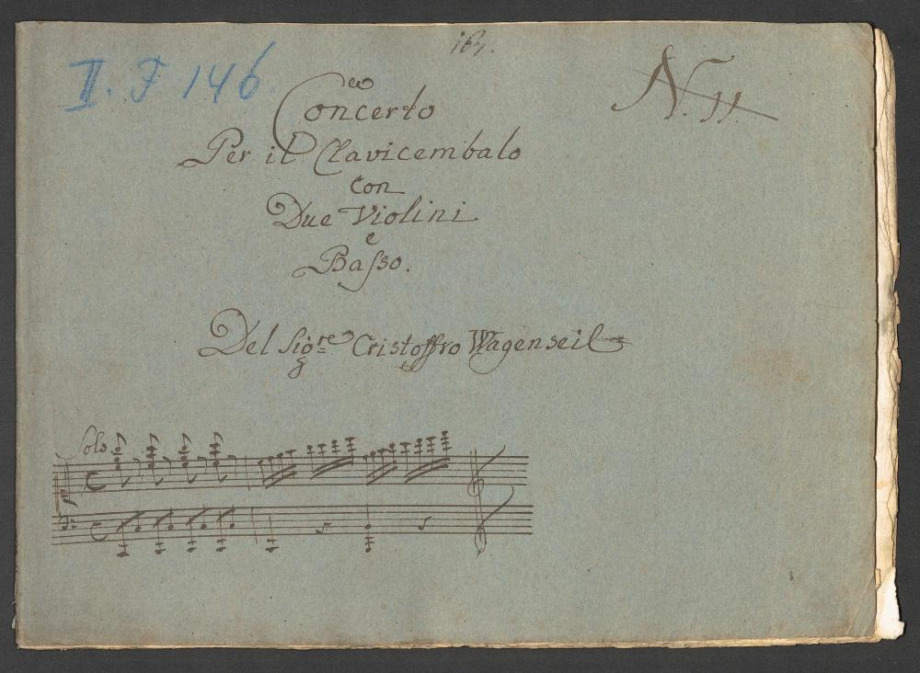 167.
II. F 146
N. 11.
Concerto
Per il Clavicembalo
con
Due Violini
e
Baſso.
Del Sigre Cristoffro Wagenseil
Solo